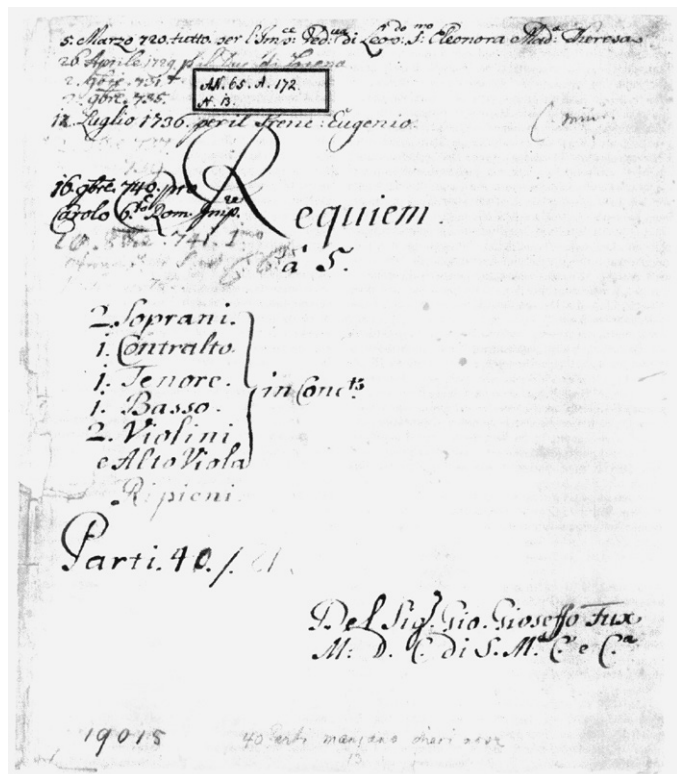 5. Marzo 720. tutto per l'Imp.ce Ved.va di Leop.do I.mo Eleonora Mad.a Theresa
26 Aprile 1729 di Lorena
2. 9bre 731
9bre. 735.
AN. 65. A. 172
N. 13.
12. Luglio 1736. per il Prene: Eugenio.
16. 9bre. 740. pro
Carolo 6to Rom. Imp.re
Requiem.
741.
à 5.
2. Soprani.
1. Contralto.
1. Tenore.
1. Basso.
2. Violini
e Alto Viola
in Conc.to
Ripieni.
Parti. 40./.
Del Sig.r Gio. Gioseffo Fux
M: D. C. di S. M.a C. e C.a
19015
40
13